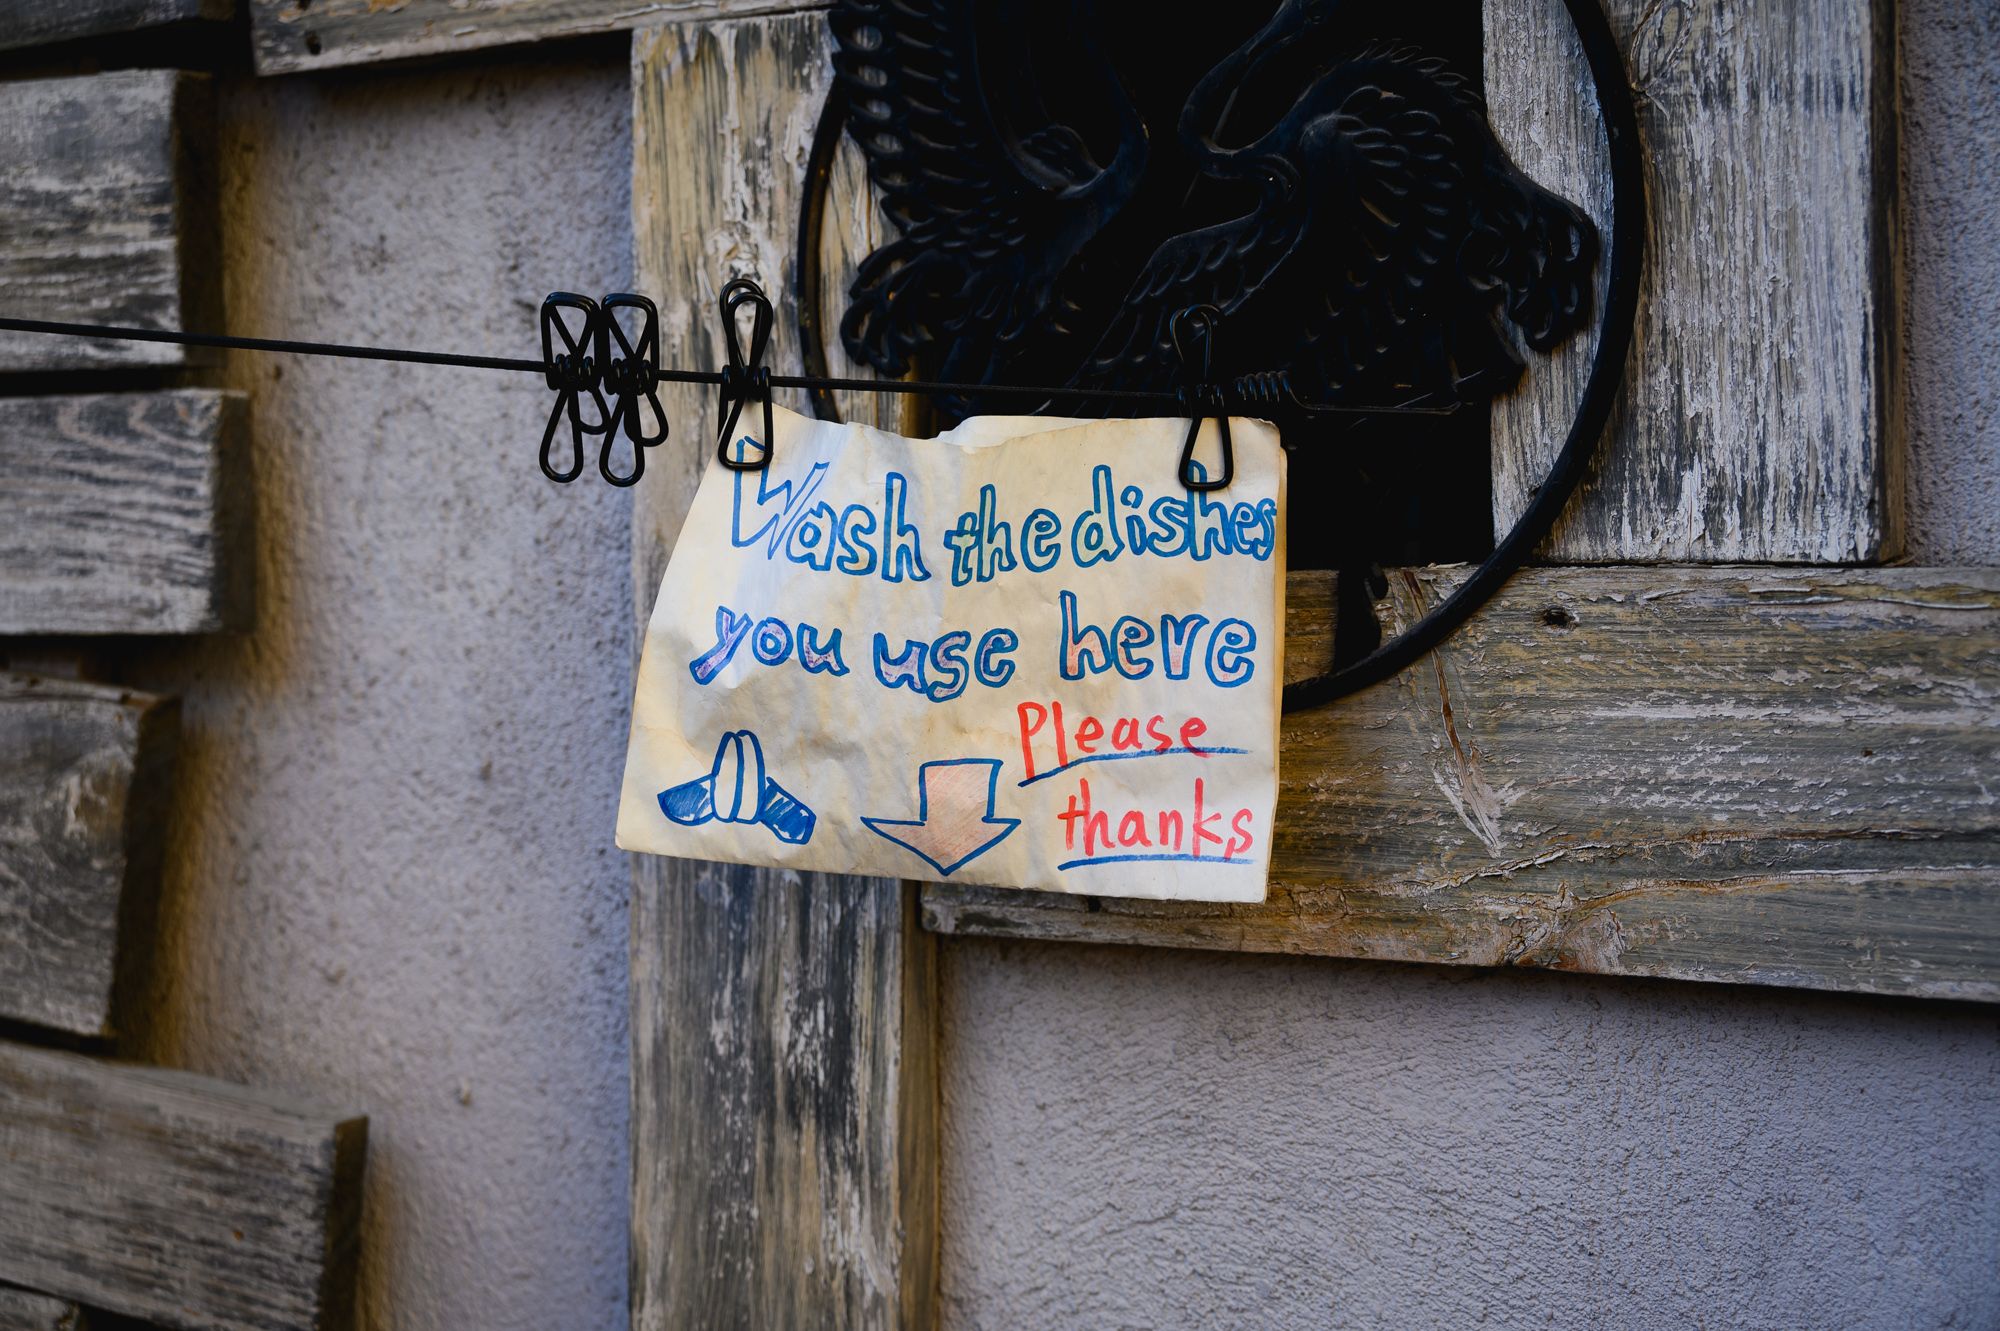 Wash the dishes
you use here
Please
thanks